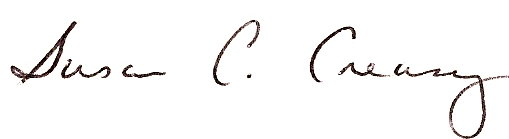 Susan C. Creasy